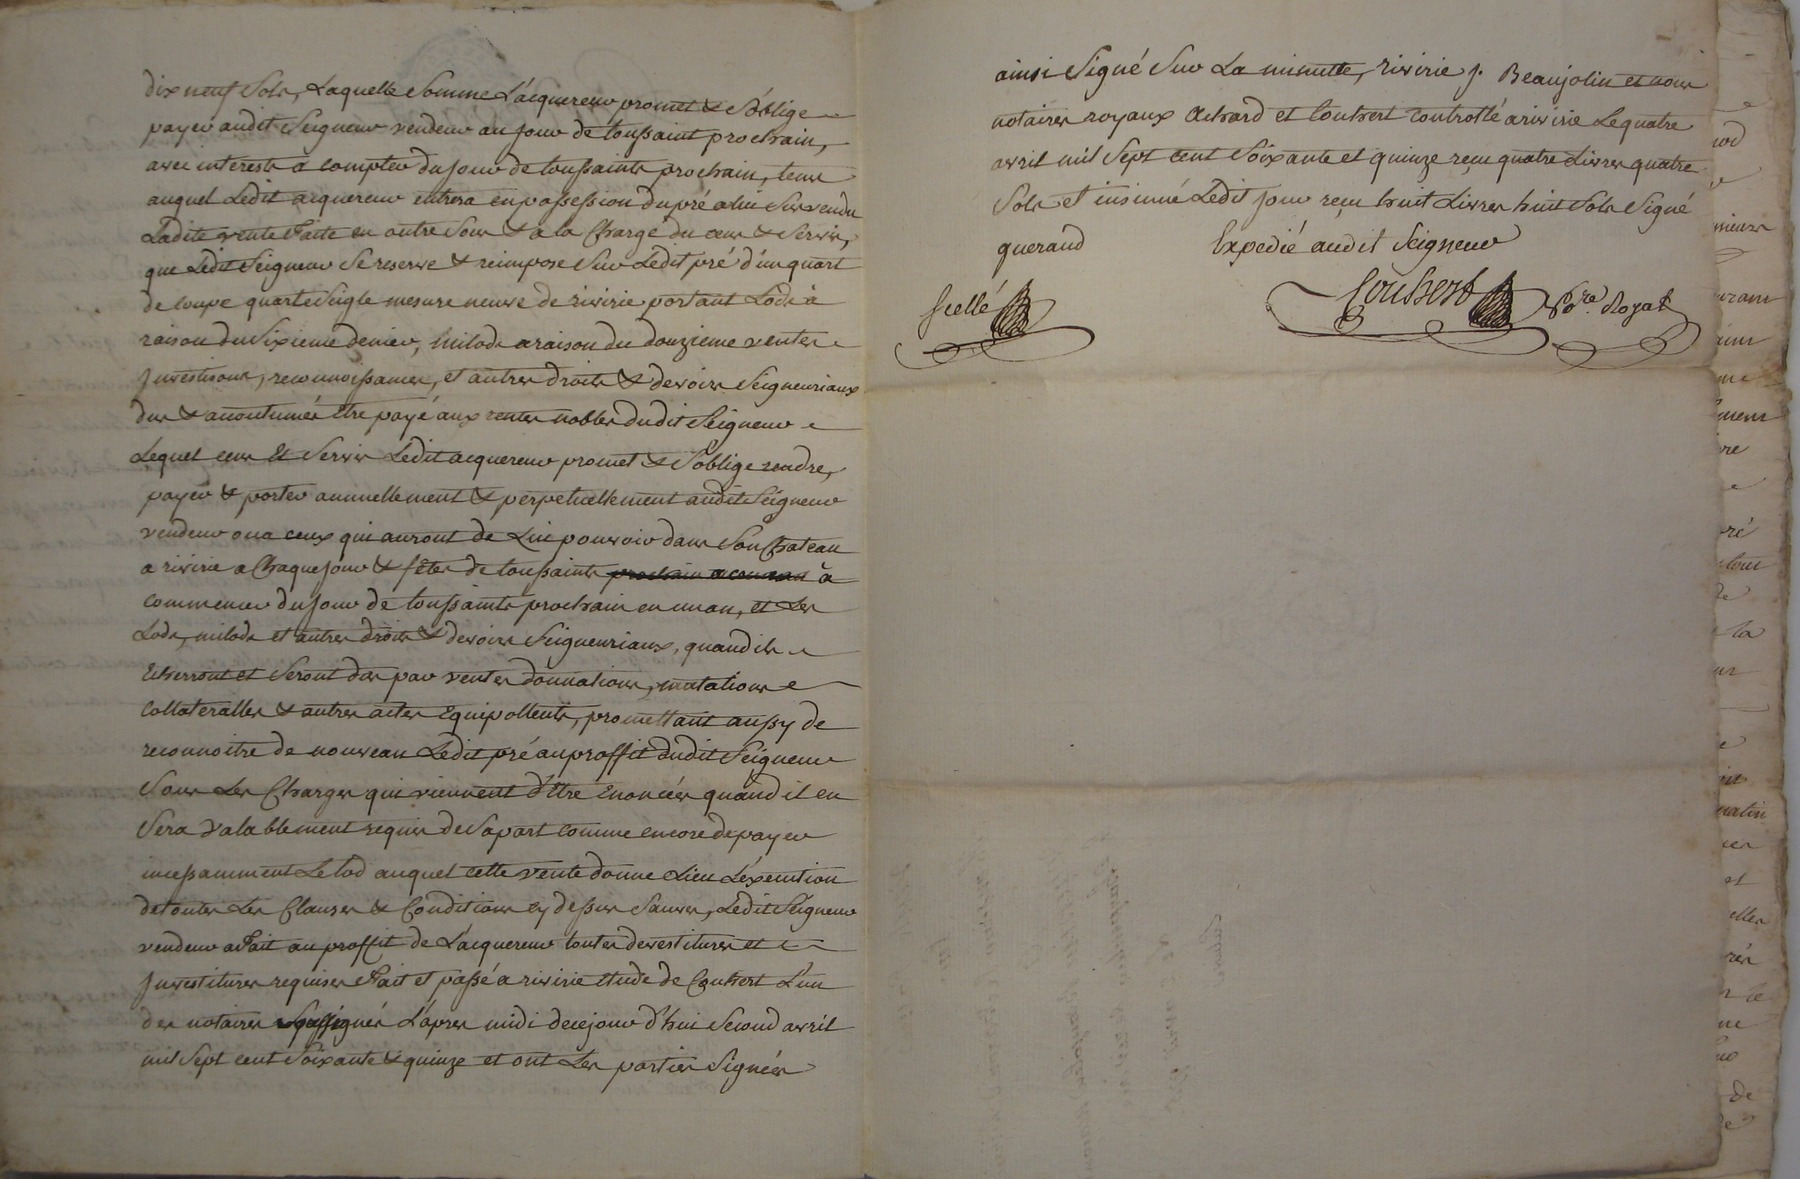 dix neuf Sols, Laquelle Somme L'acquereur promet & S'oblige
payer audit Seigneur vendeur au jour de toussaint prochain,
avec interests a compter du jour de toussaints prochain, tems
auquel Ledit acquereur entrera en possession du pré a lui Sus vendu
Ladite vente faite en outre Sous & a la Charge du cens & Servis,
que Ledit Seigneur Se reserve & reimpose Sur Ledit pré d'un quart
de coupe quarte Seigle mesure neuve de rivirie portant Lods à
raison du Sixieme denier, milods a raison du douzieme ventes
investisons, reconnoissances, et autres droits & devoirs Seigneuriaux
dus & accoutumés être payé aux rentes nobles dudit Seigneur
Lequel cens et Servis Ledit acquereur promet & S'oblige rendre,
payer & porter annuellement & perpetuellement audit Seigneur
vendeur ou a ceux qui auront de Lui pouvoir dans Son Chateau
a rivirie a Chaque jour & fêtes de toussaints prochain a à
commencer du jour de toussaints prochain en un an, et Les
Lods, milods et autres droits & devoirs Seigneuriaux, quand ils
Echerront et Seront dus par ventes donnations, mutations
Collateralles & autres actes Equipollents, promettant aussy de
reconnoitre de nouveau Ledit pré au proffit dudit Seigneur
Sous Les Charges qui viennent d'être Enoncées quand il en
Sera valablement requis de Sa part comme encore de payer
incessamment Le lod auquel cette vente donne Lieu L'éxecution
de toutes Les Clauses & Conditions cy dessus Sauves, Ledit Seigneur
vendeur a fait au proffit de L'acquereur toutes devestitures et
investitures requises fait et passé a rivirie etude de Couhert L'un
des notaires Soussignés L'apres midi de ce jour d'hui Second avril
mil Sept cent Soixante & quinze et ont Les parties Signées
ainsi Signé Sur La minutte, rivirie j. Beaujolin et nous
notaires royaux Achard et Couhert controllé a rivirie Le quatre
avril mil Sept cent Soixante et quinze reçu quatre Livres quatre
Sols et insinué Ledit jour reçu huit Livres huit Sols Signé
querand
Expedié audit Seigneur
Scellé
No.re Royal